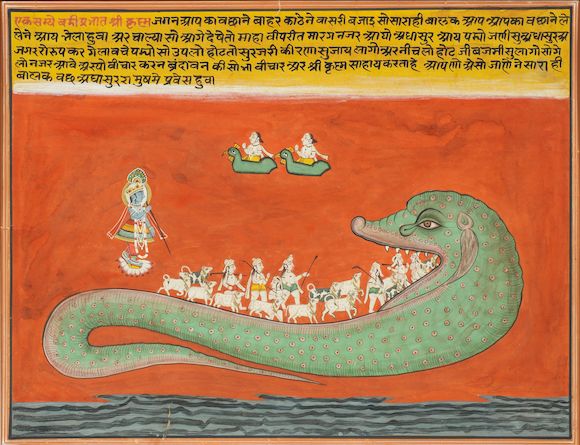 एक समे श्री प्रभात श्री कृष्ण जगन आय का वछाने बाहर काढेने वासरी बजाइ सो सारा ही बालक आय आपका वछाने ले
लेने आय भेला हुवा अर चाल्या सो आगे देषे तो माहा वीपरीत मारग नजर आयो अघासूर आय पड्यो जाणी सुब्र अघासुर
जगरो रूप कर गेला बचे पड्यो सो उपलो होट तो सुरजरी कीरणासु जाय लागो अर नीचलो होट जी बजमी सु लागो सो गे
लो नजर आवे अस्यो बीचार कर न ब्रंदावन की सोभा बीचार अर श्री कृष्ण साहाय करता है आपणो असो जाणे ने सारा ही
बालक वछ अघासुररा मुषमे प्रवेस हुवा